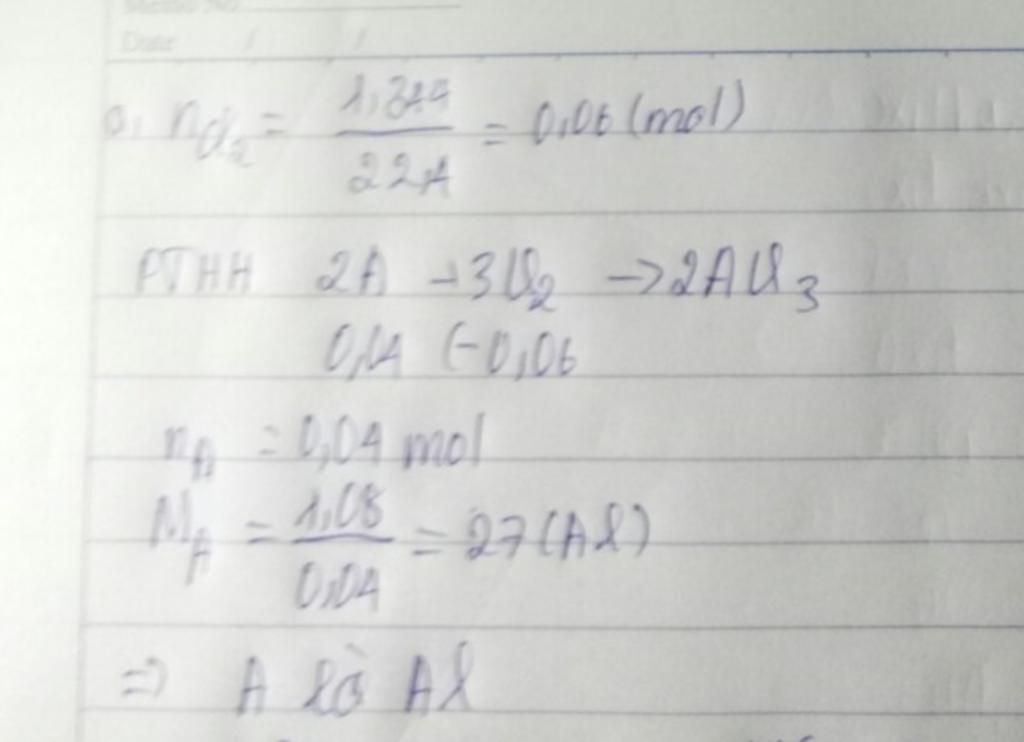 Date / /
a, nCl₂ = 1,344 / 22,4 = 0,06 (mol)
PTHH 2A + 3Cl₂ → 2ACl₃
0,04 ← 0,06
nA = 0,04 mol
MA = 1,08 / 0,04 = 27 (Al)
⇒ A là Al